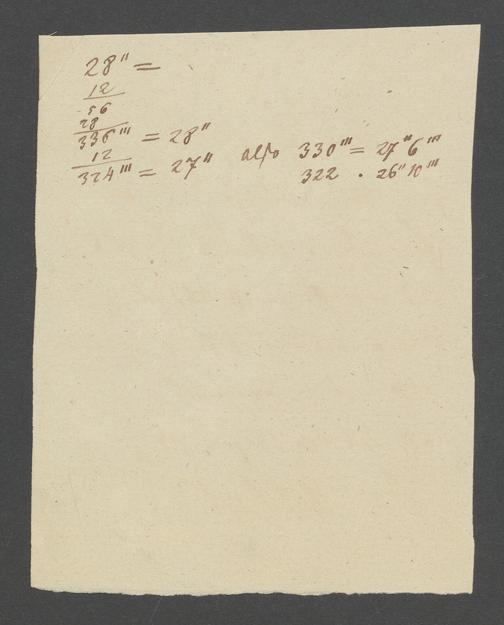 28'' =
12
56
28
336''' = 28''
12
324''' = 27'' also 330''' = 27'' 6'''
322 . 26'' 10'''